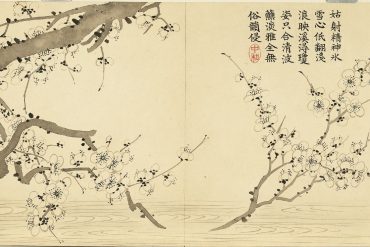 姑射精神冰
雪心低翻淺
浪映溪潯瓊
姿只合清波
蘸淡雅全無
俗韻侵